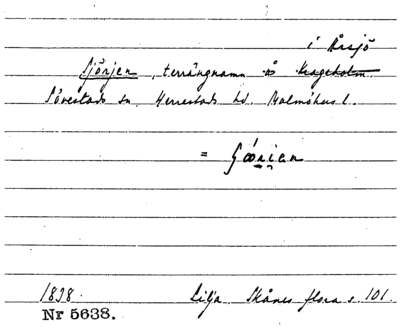 i Årsjö
Sjörjen, terrängnamn å Krageholm
Sövestads sn. Herrestads hd. Malmöhus l.
= Göörien
1838. Lilja Skånes flora s. 101.
Nr 5638.